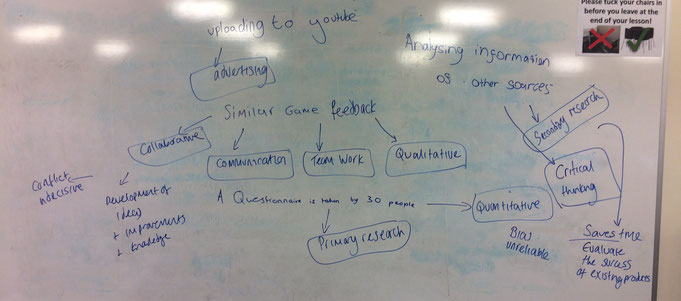 Please tuck your chairs in
before you leave at the
end of your lesson!
uploading to youtube
advertising
Analysing information
of other sources
Similar Game feedback
Collaborative
Communication
Team Work
Qualitative
Secondary research
Critical
thinking
Conflict
indecisive
Development of
ideas
+ improvements
+ knowledge
A Questionnaire is taken by 30 people
Quantitative
Bias
unreliable
Primary research
Saves time
Evaluate
the success
of existing products